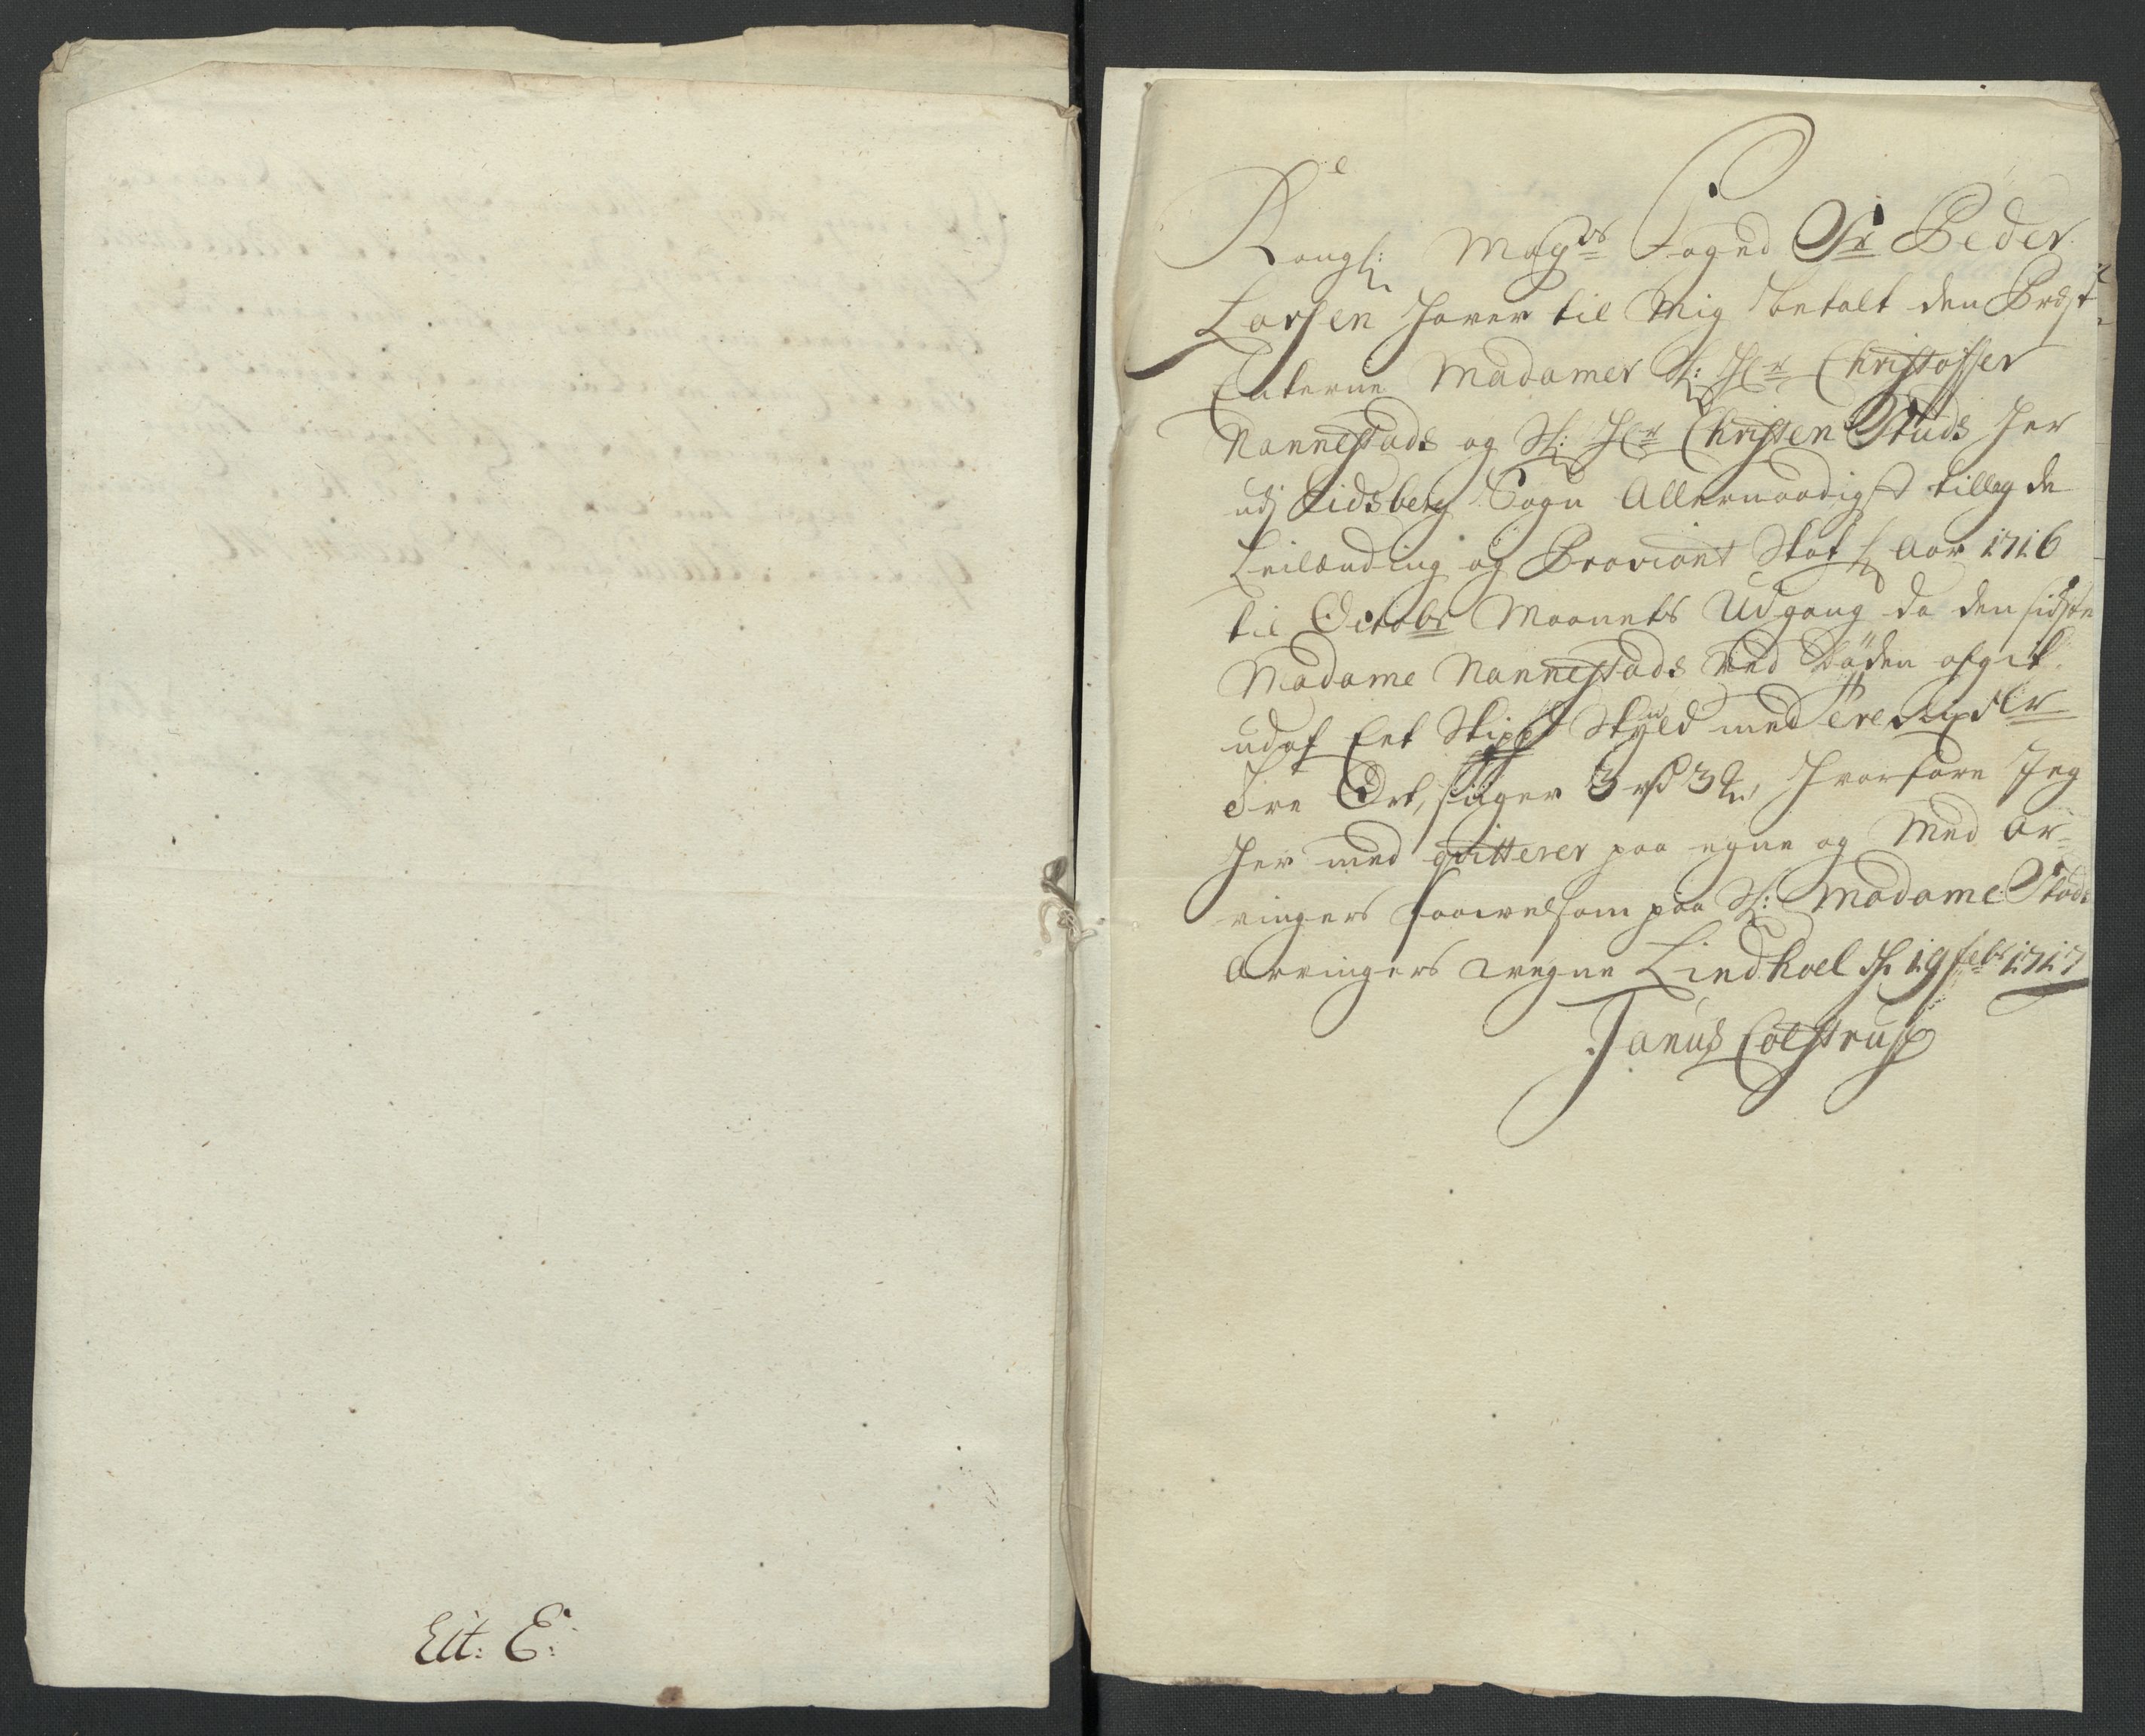 Lit: E:
Kongl: Mayts Foged Sr Peder
Larsen hafver til Mig betalt den Præste
Enkerne Madamer Sl: Hr Christoffer
Nannestads og Sl: Hr Christen Studs her
udj Eidsberg Sogn Allernaadigst tillagde
Leilænding og Proviant Skat for Aar 1716
til Octobr Maanets Udgang da den sidste
Madame Nannestads ved Døden afgik
udaf Eet Skippd Skyld med Tre Rixdlr
Tre Ort, siiger 3 rd 3 ort, hvorfore Jeg
her med qvitterer paa egne og Med Ar-
vingers saavelsom paa Sl: Madame Studs
Arvingers vegne Lindhoel d. 19 febr 1717
Janus Colstrup